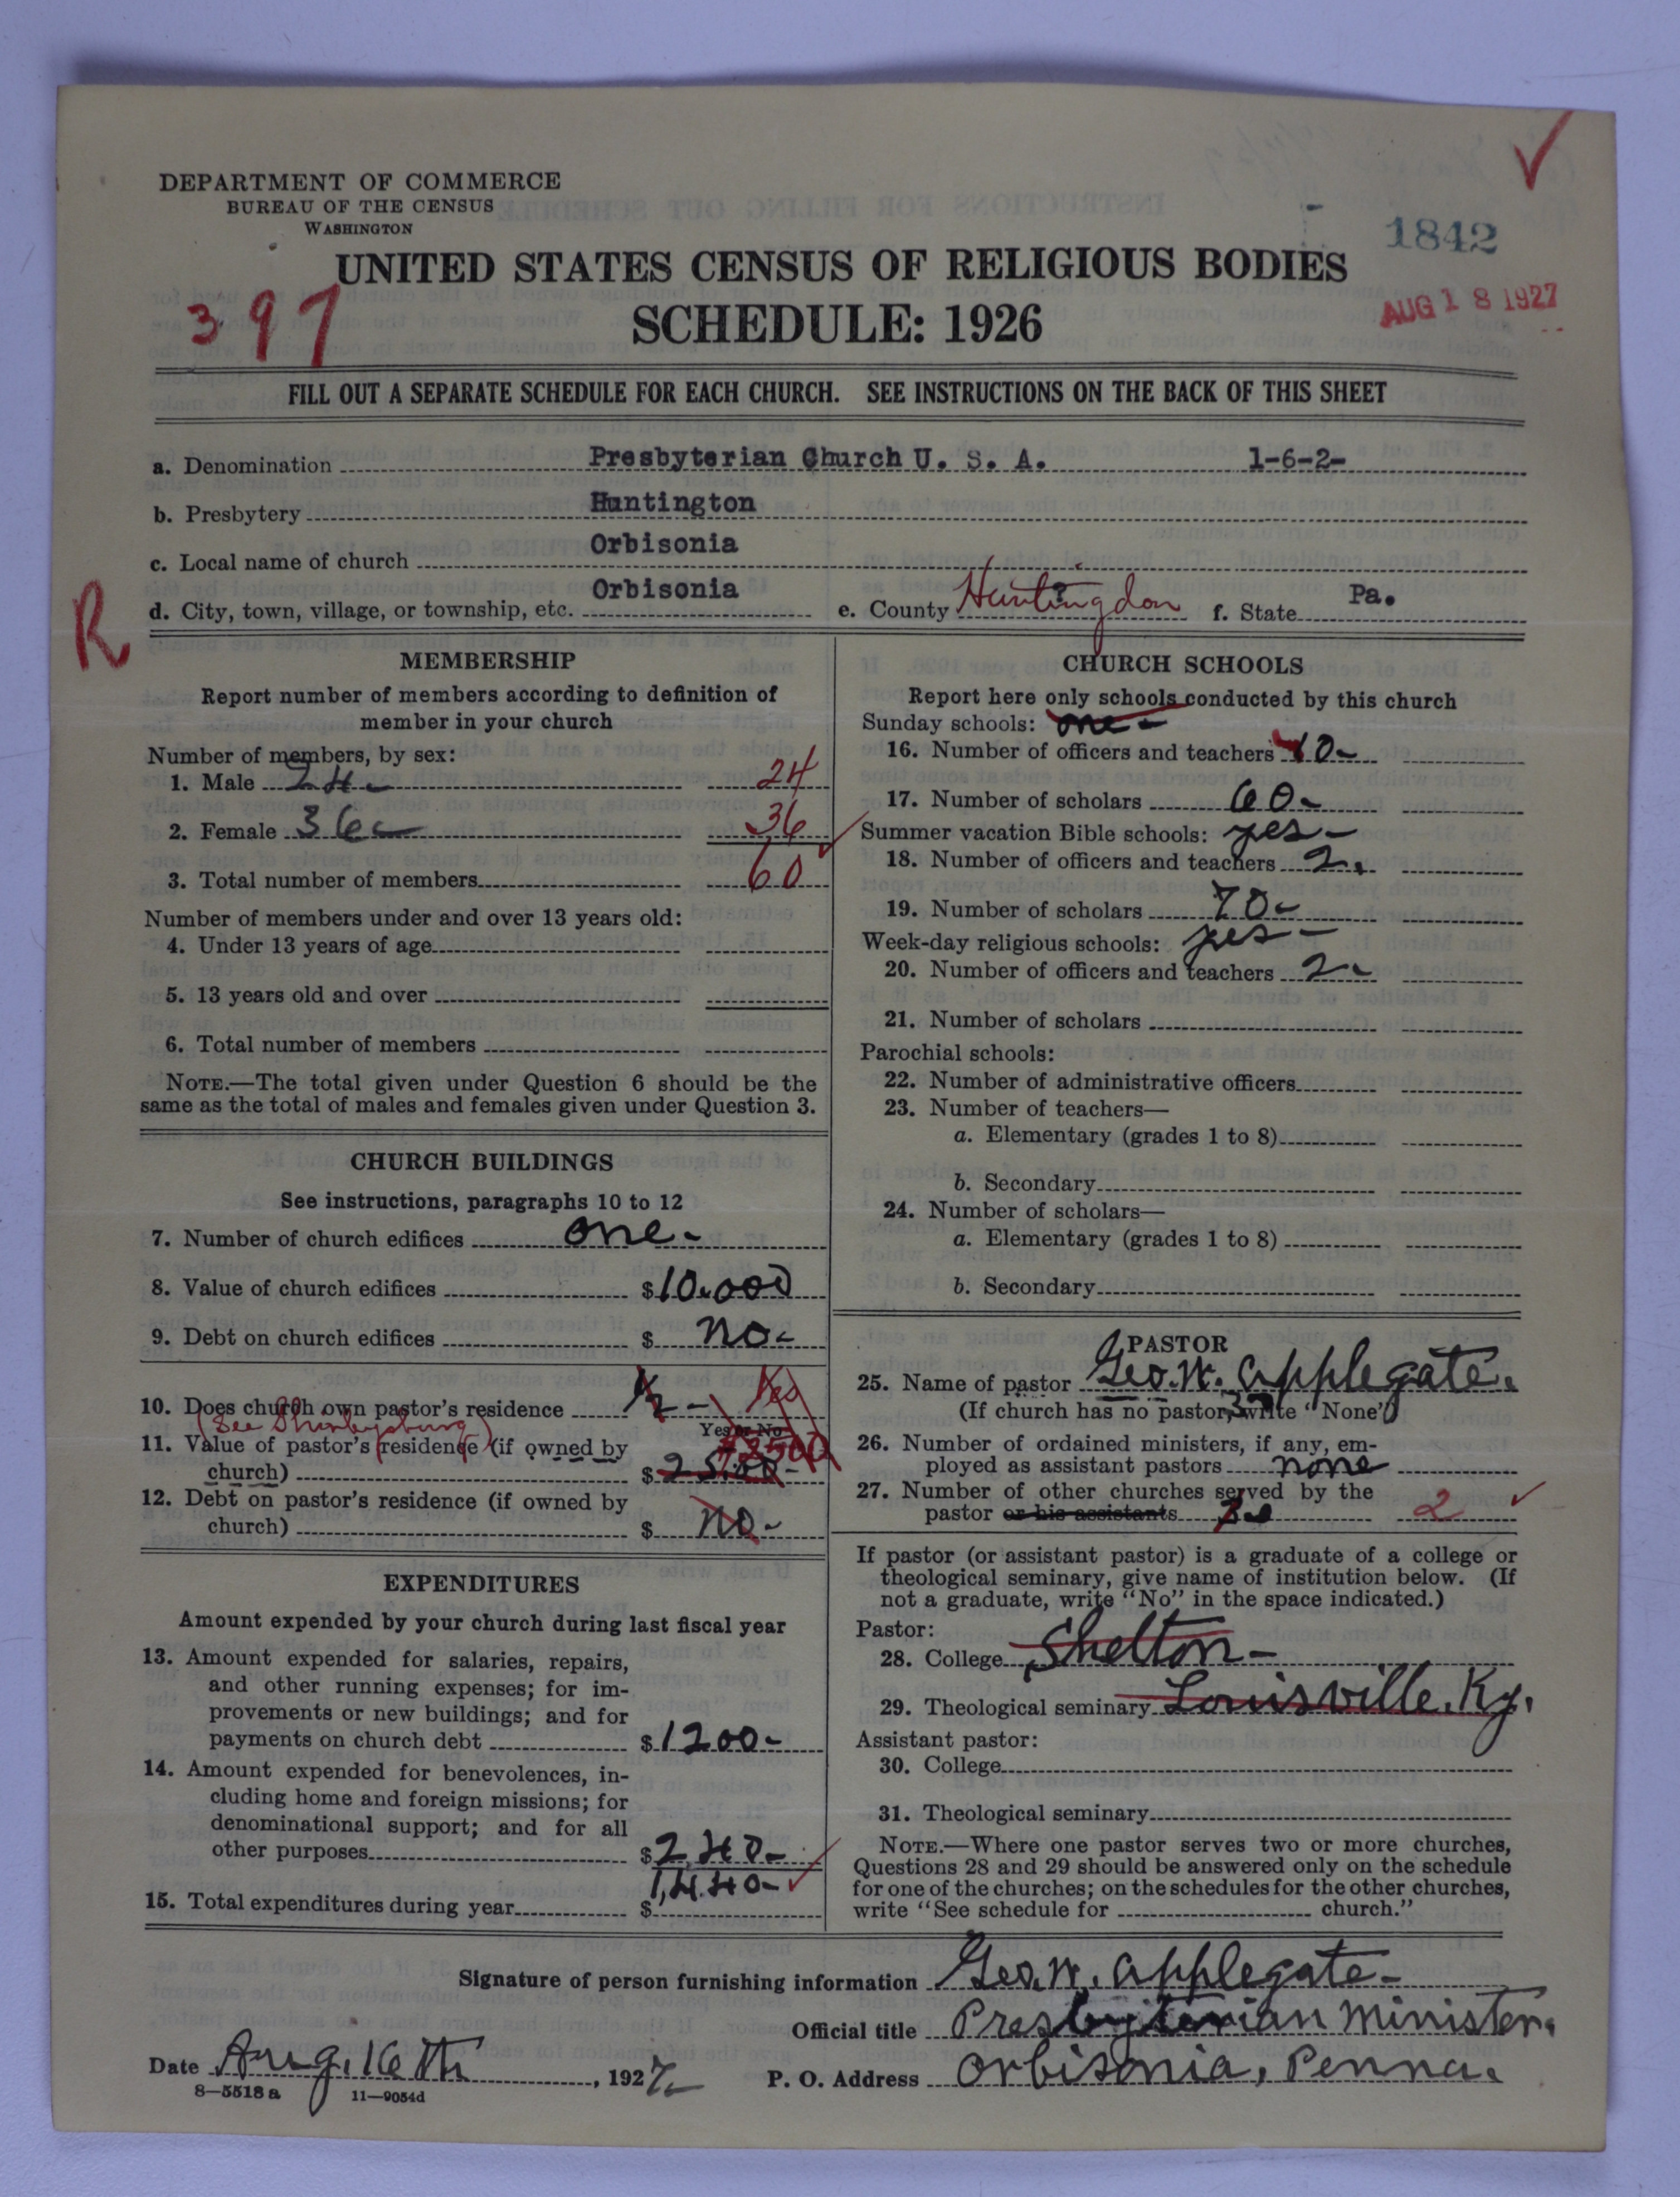 DEPARTMENT OF COMMERCE
BUREAU OF THE CENSUS
WASHINGTON
1842
UNITED STATES CENSUS OF RELIGIOUS BODIES
397
SCHEDULE: 1926
AUG 18 1927
FILL OUT A SEPARATE SCHEDULE FOR EACH CHURCH. SEE INSTRUCTIONS ON THE BACK OF THIS SHEET
a. Denomination Presbyterian Church U. S. A. 1-6-2-
b. Presbytery Huntington
c. Local name of church Orbisonia
d. City, town, village, or township, etc. Orbisonia e. County Huntingdon ? f. State Pa.
R
MEMBERSHIP
Report number of members according to definition of
member in your church
Number of members, by sex:
1. Male 24- 24
2. Female 36- 36
3. Total number of members 60
Number of members under and over 13 years old:
4. Under 13 years of age
5. 13 years old and over
6. Total number of members
NOTE.—The total given under Question 6 should be the
same as the total of males and females given under Question 3.
CHURCH BUILDINGS
See instructions, paragraphs 10 to 12
7. Number of church edifices one-
8. Value of church edifices $10,000
9. Debt on church edifices $ no-
10. Does church own pastor's residence 1/2 - Yes
Yes or No
(See Shirleysburg)
11. Value of pastor's residence (if owned by
church) $2500- $2500
12. Debt on pastor's residence (if owned by
church) $ no-
EXPENDITURES
Amount expended by your church during last fiscal year
13. Amount expended for salaries, repairs,
and other running expenses; for im-
provements or new buildings; and for
payments on church debt $1200-
14. Amount expended for benevolences, in-
cluding home and foreign missions; for
denominational support; and for all
other purposes $240-
15. Total expenditures during year $ 1,440-
CHURCH SCHOOLS
Report here only schools conducted by this church
Sunday schools: one-
16. Number of officers and teachers 10-
17. Number of scholars 60-
Summer vacation Bible schools: yes-
18. Number of officers and teachers 2.
19. Number of scholars 70-
Week-day religious schools: yes-
20. Number of officers and teachers 2-
21. Number of scholars
Parochial schools:
22. Number of administrative officers
23. Number of teachers—
a. Elementary (grades 1 to 8)
b. Secondary
24. Number of scholars—
a. Elementary (grades 1 to 8)
b. Secondary
PASTOR
25. Name of pastor Geo. W. Applegate.
(If church has no pastor, write "None")
26. Number of ordained ministers, if any, em-
ployed as assistant pastors none
27. Number of other churches served by the
pastor or his assistants 2
If pastor (or assistant pastor) is a graduate of a college or
theological seminary, give name of institution below. (If
not a graduate, write "No" in the space indicated.)
Pastor:
28. College Shelton-
29. Theological seminary Louisville, Ky.
Assistant pastor:
30. College
31. Theological seminary
NOTE.—Where one pastor serves two or more churches,
Questions 28 and 29 should be answered only on the schedule
for one of the churches; on the schedules for the other churches,
write "See schedule for church."
Signature of person furnishing information Geo. W. Applegate-
Official title Presbyterian Minister.
Date Aug. 16th, 1927- P. O. Address Orbisonia, Penna.
8—5518 a 11—9054d